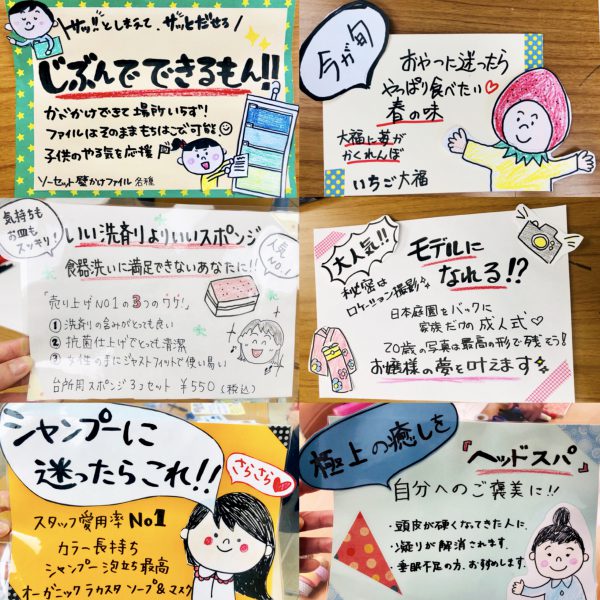 サッ!!としまえて、ザッとだせる
じぶんでできるもん!!
かべかけできて場所いらず!
ファイルはそのままもちはこび可能
子供のやる気を応援
ソーセット壁かけファイル 各種
今が旬
おやつに迷ったら
やっぱり食べたい♡
春の味
大福に苺が
かくれんぼ
いちご大福
気持ちも
お皿も
スッキリ!
いい洗剤よりいいスポンジ
人気
NO.1
食器洗いに満足できないあなたに!!
「売り上げNO1の3つのワケ!」
①洗剤の含みがとっても良い
②抗菌仕上げでとっても清潔
③女性の手にジャストフィットで使い易い
台所用スポンジ3コセット ¥550(税込)
大人気!!
モデルに
なれる!?
秘密は
ロケーション撮影
日本庭園をバックに
家族だけの成人式♡
20歳の写真は最高の形で残そう!
お嬢様の夢を叶えます
シャンプーに
迷ったらこれ!!
さらさら
スタッフ愛用率No1
カラー長持ち
シャンプー泡立ち最高
オーガニックラカスタ ソープ&マスク
極上の癒しを
『ヘッドスパ』
自分へのご褒美に!!
・頭皮が硬くなってきた人に.
・凝りが解消されます.
・睡眠不足の方、おすすめします.